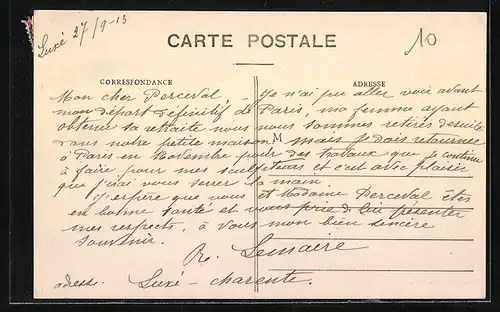 Luxé 27/9-13
10
CARTE POSTALE
CORRESPONDANCE
ADRESSE
Mon cher Perceval, - Je n'ai pu aller voir avant
mon départ définitif de Paris, ma femme ayant
obtenu sa retraite nous nous sommes retirés desuite
dans notre petite maison M mais je dois retourner
à Paris en Novembre pour des travaux que je continue
à faire pour mes sculpteurs et c'est avec plaisir
que j'irai vous serrer la main.
J'espère que vous et Madame Perceval êtes
en bonne santé et vous prie de lui présenter
mes respects, à vous mon bien sincère
souvenir.
Re. Lemaire
adresse. Luxé - charente.